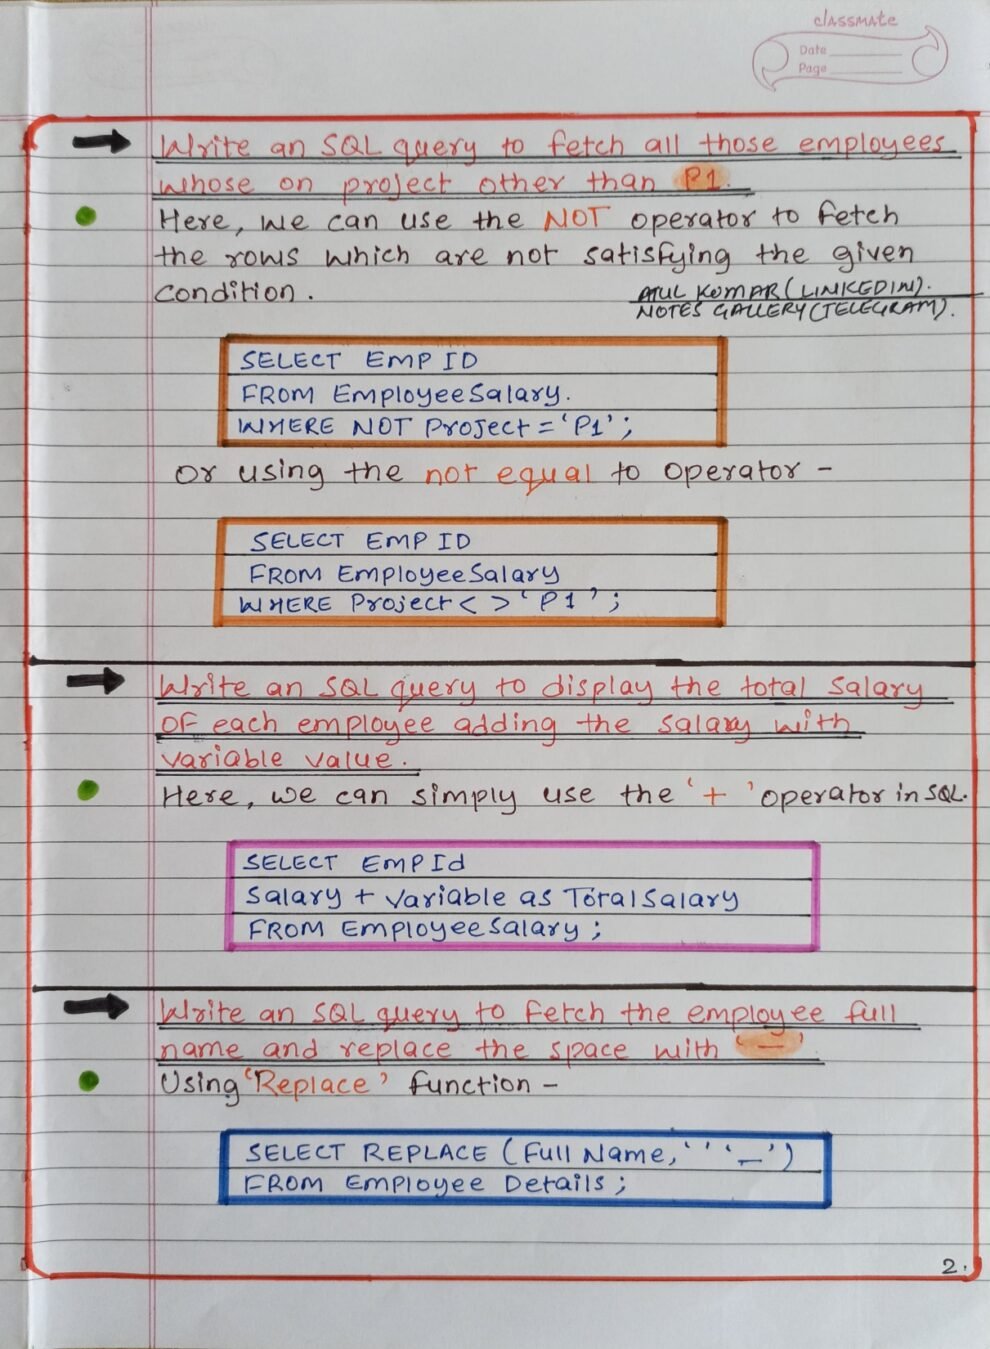 classmate
Date
Page
Write an SQL query to fetch all those employees
whose on project other than P1.
Here, we can use the NOT operator to fetch
the rows which are not satisfying the given
condition.
ATUL KUMAR (LINKEDIN).
NOTES GALLERY (TELEGRAM).
SELECT EMP ID
FROM EmployeeSalary.
WHERE NOT Project = 'P1';
Or using the not equal to operator -
SELECT EMP ID
FROM EmployeeSalary
WHERE Project < > 'P1';
Write an SQL query to display the total salary
of each employee adding the salary with
variable value.
Here, we can simply use the '+' operator in SQL.
SELECT EmpId
Salary + variable as TotalSalary
FROM EmployeeSalary;
Write an SQL query to fetch the employee full
name and replace the space with '_'.
Using 'Replace' function -
SELECT REPLACE (Full Name, ' ' '_')
FROM Employee Details;
2.